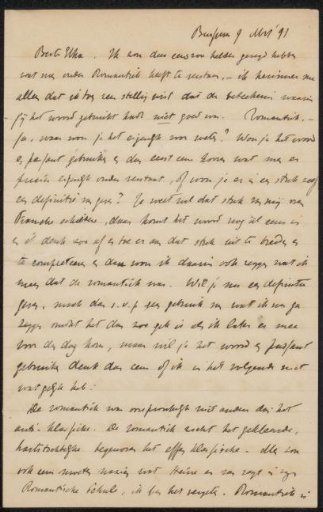 Bussum 9 Mrt '91
Beste Wba. Ik kon dan eens van helder gezegd hebben
wat men onder Romantiek heeft te verstaan, — ik herinner me
alles dat ik toen een stellig wist dat de beteekenis waarin
jij het woord gebruikt hadt niet goed was. Romantiek. —
Ja, waar voor je het eigenlijk voor weten? Wou je het woord
en passant gebruiken en dus eerst eens hooren wat men er
precies eigenlijk onder verstaat, of voor je er in een stuk nog
een definitie van geven? Je weet wel dat stuk van mij van
Fransche schilders, daar komt het woord nog al eens in
en ik denk zoo af en toe er aan dat stuk uit te breiden en
te completeeren en dan wou ik daarin ook zeggen wat ik
meen dat de romantiek was. Wil je nu een definitie
geven, maak dan s.v.p. geen gebruik van wat ik je ga
zeggen omdat het dan zoo gek is als ik later er mee
voor den dag kom, maar wil je het woord en passant
gebruiken denk dan eens of ik in het volgende niet
wat gelijk heb:
De romantiek was oorspronkelijk niet anders dan het
anti-klassieke. De romantiek zocht het gekleurde,
hartstochtelijke tegenover het effen klassieke. Alle
ook een manier waarin wat Heine er van zegt in zijn
Romantische Schule, ik ben het vergeten. Romantiek is